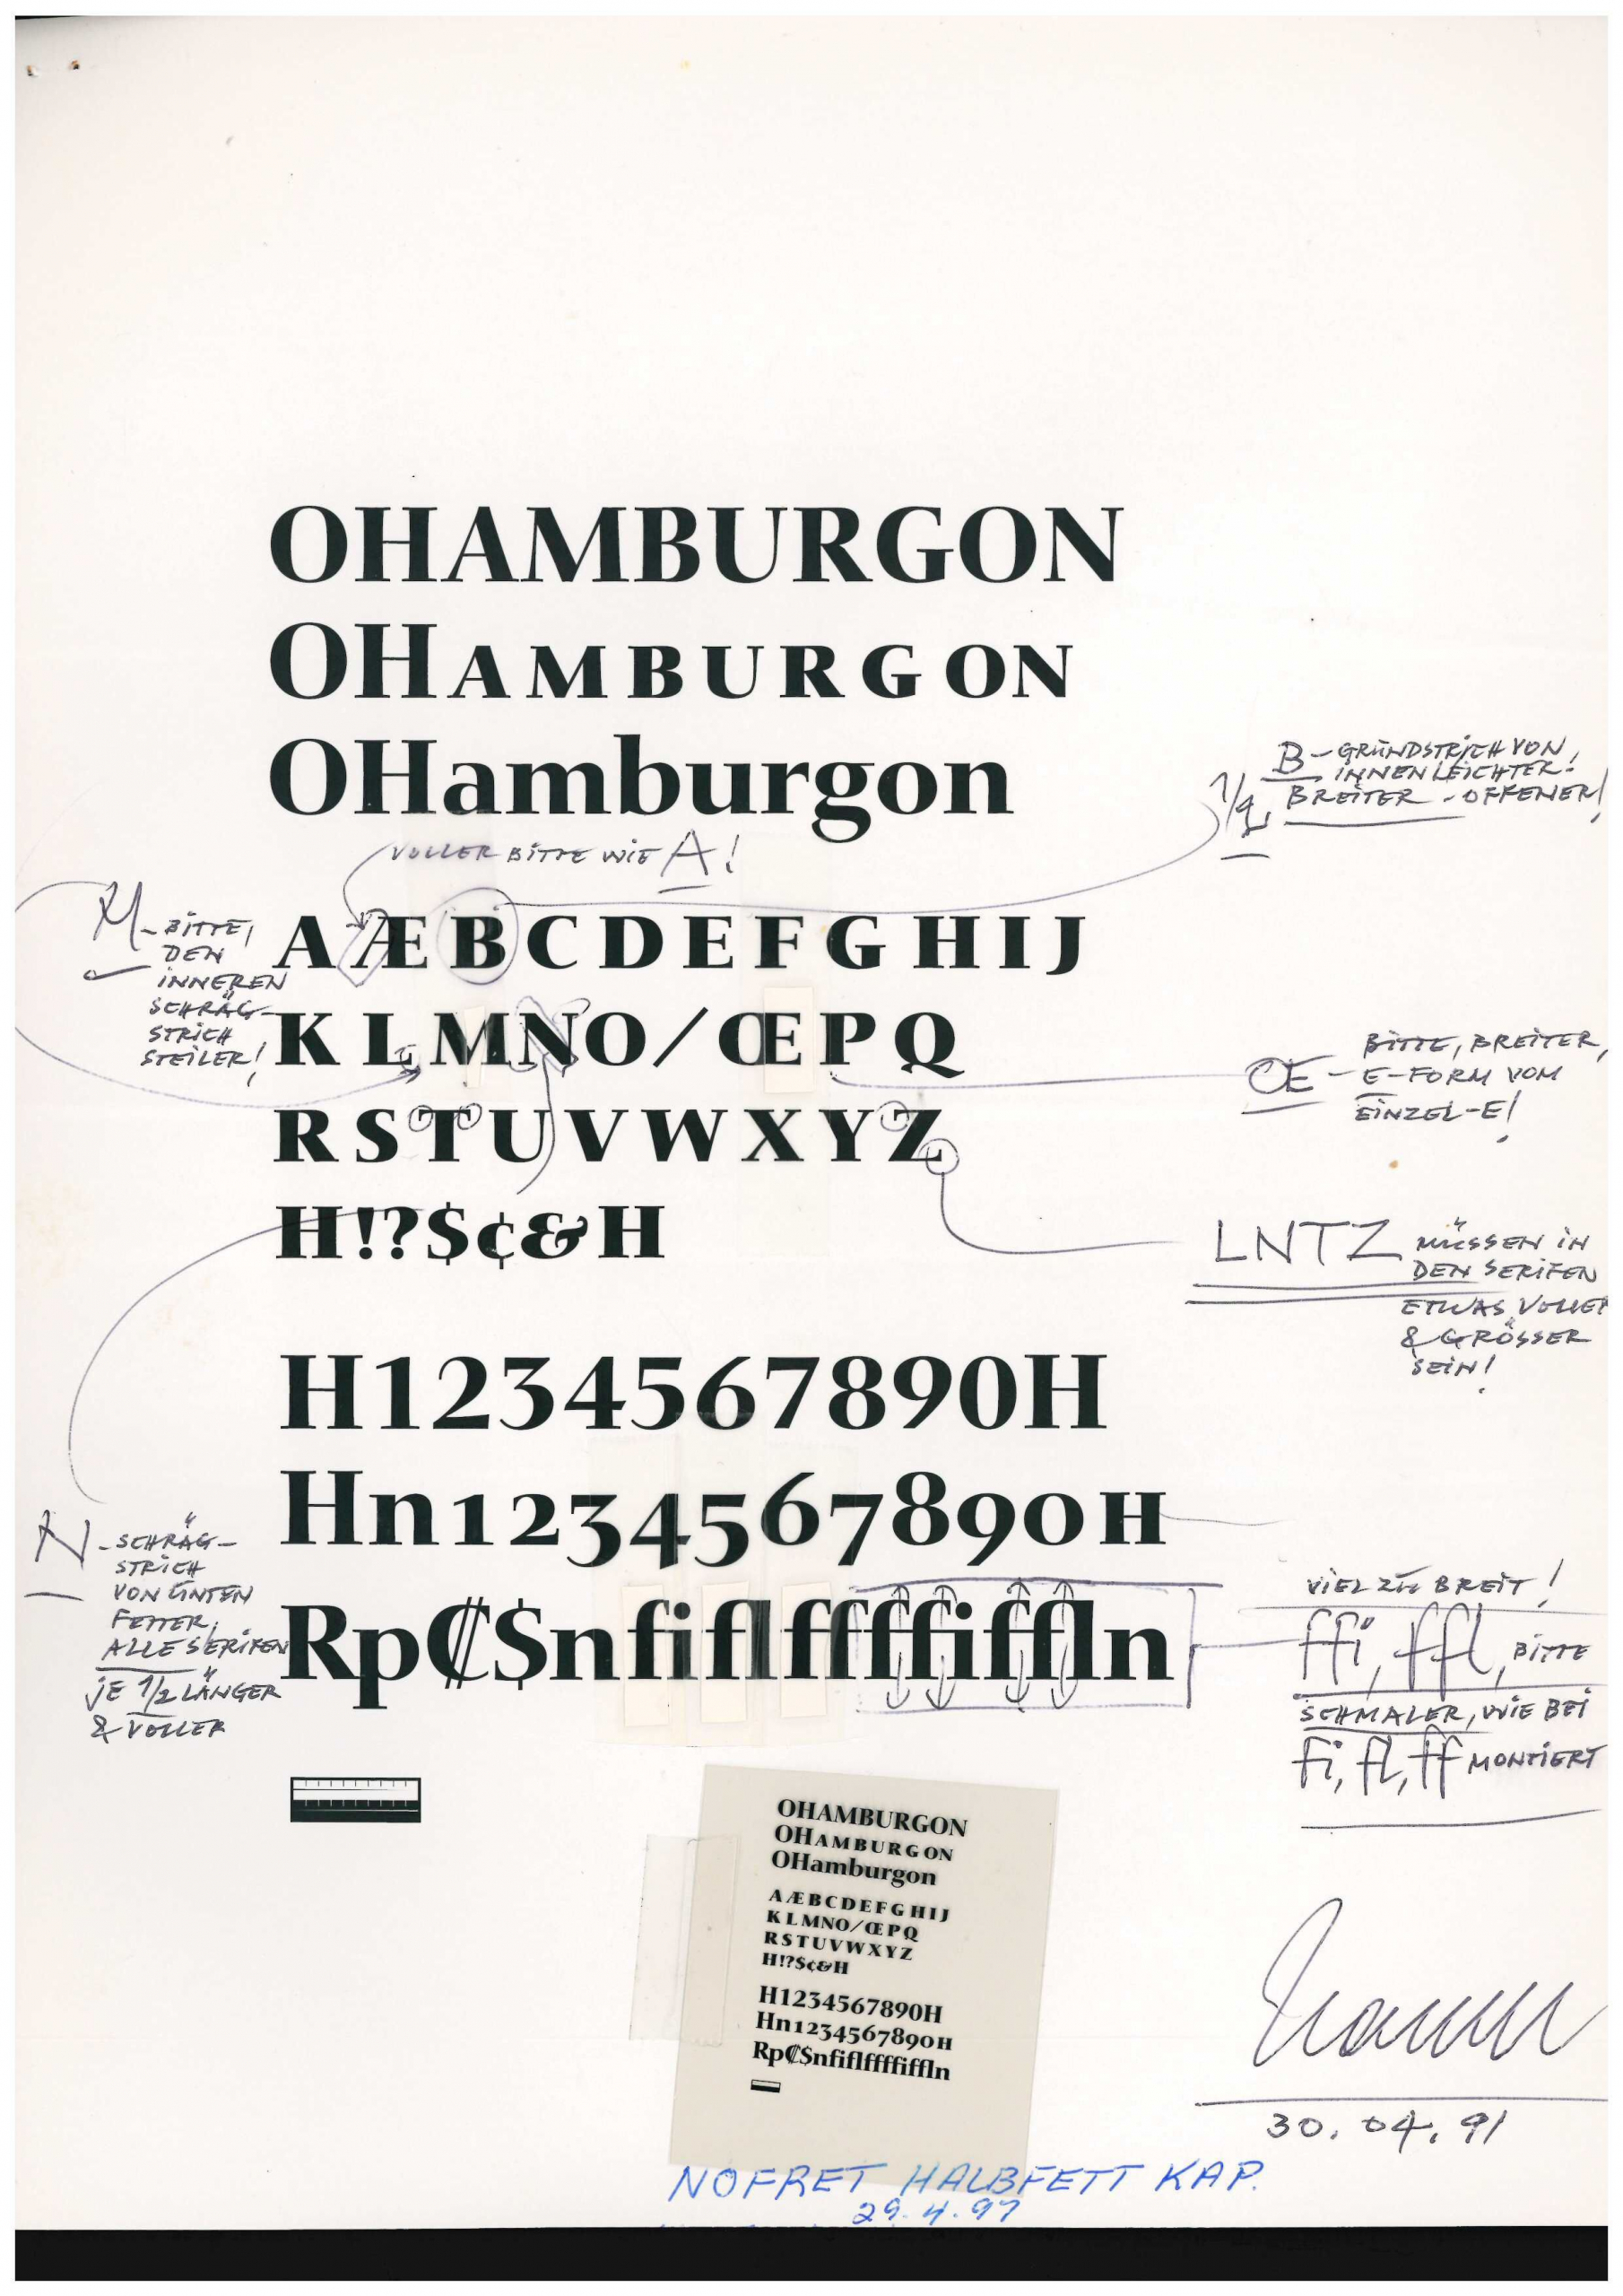 OHAMBURGON
OHAMBURGON
OHamburgon
B – GRUNDSTRICH VON
INNEN LEICHTER!
BREITER – OFFENER!
VOLLER BITTE WIE A!
M – BITTE,
DEN
INNEREN
SCHRÄG-
STRICH
STEILER!
AÆBCDEFGHIJ
KLMNO/ŒPQ
RSTUVWXYZ
H!?$¢&H
Œ – BITTE, BREITER,
E-FORM VOM
EINZEL-E!
LNTZ MÜSSEN IN
DEN SERIFEN
ETWAS VOLLER
& GRÖSSER
SEIN!
H1234567890H
Hn1234567890H
RpȻ$nfiflffffiffln
N – SCHRÄG-
STRICH
VON UNTEN
FETTER,
ALLE SERIFEN
JE 1/2 LÄNGER
& VOLLER
VIEL ZU BREIT!
ffi, ffl, BITTE
SCHMALER, WIE BEI
fi, fl, ff MONTIERT
OHAMBURGON
OHAMBURGON
OHamburgon
AÆBCDEFGHIJ
KLMNO/ŒPQ
RSTUVWXYZ
H!?$¢&H
H1234567890H
Hn1234567890H
RpȻ$nfiflffffiffln
30.04.91
NOFRET HALBFETT KAP.
29.4.91